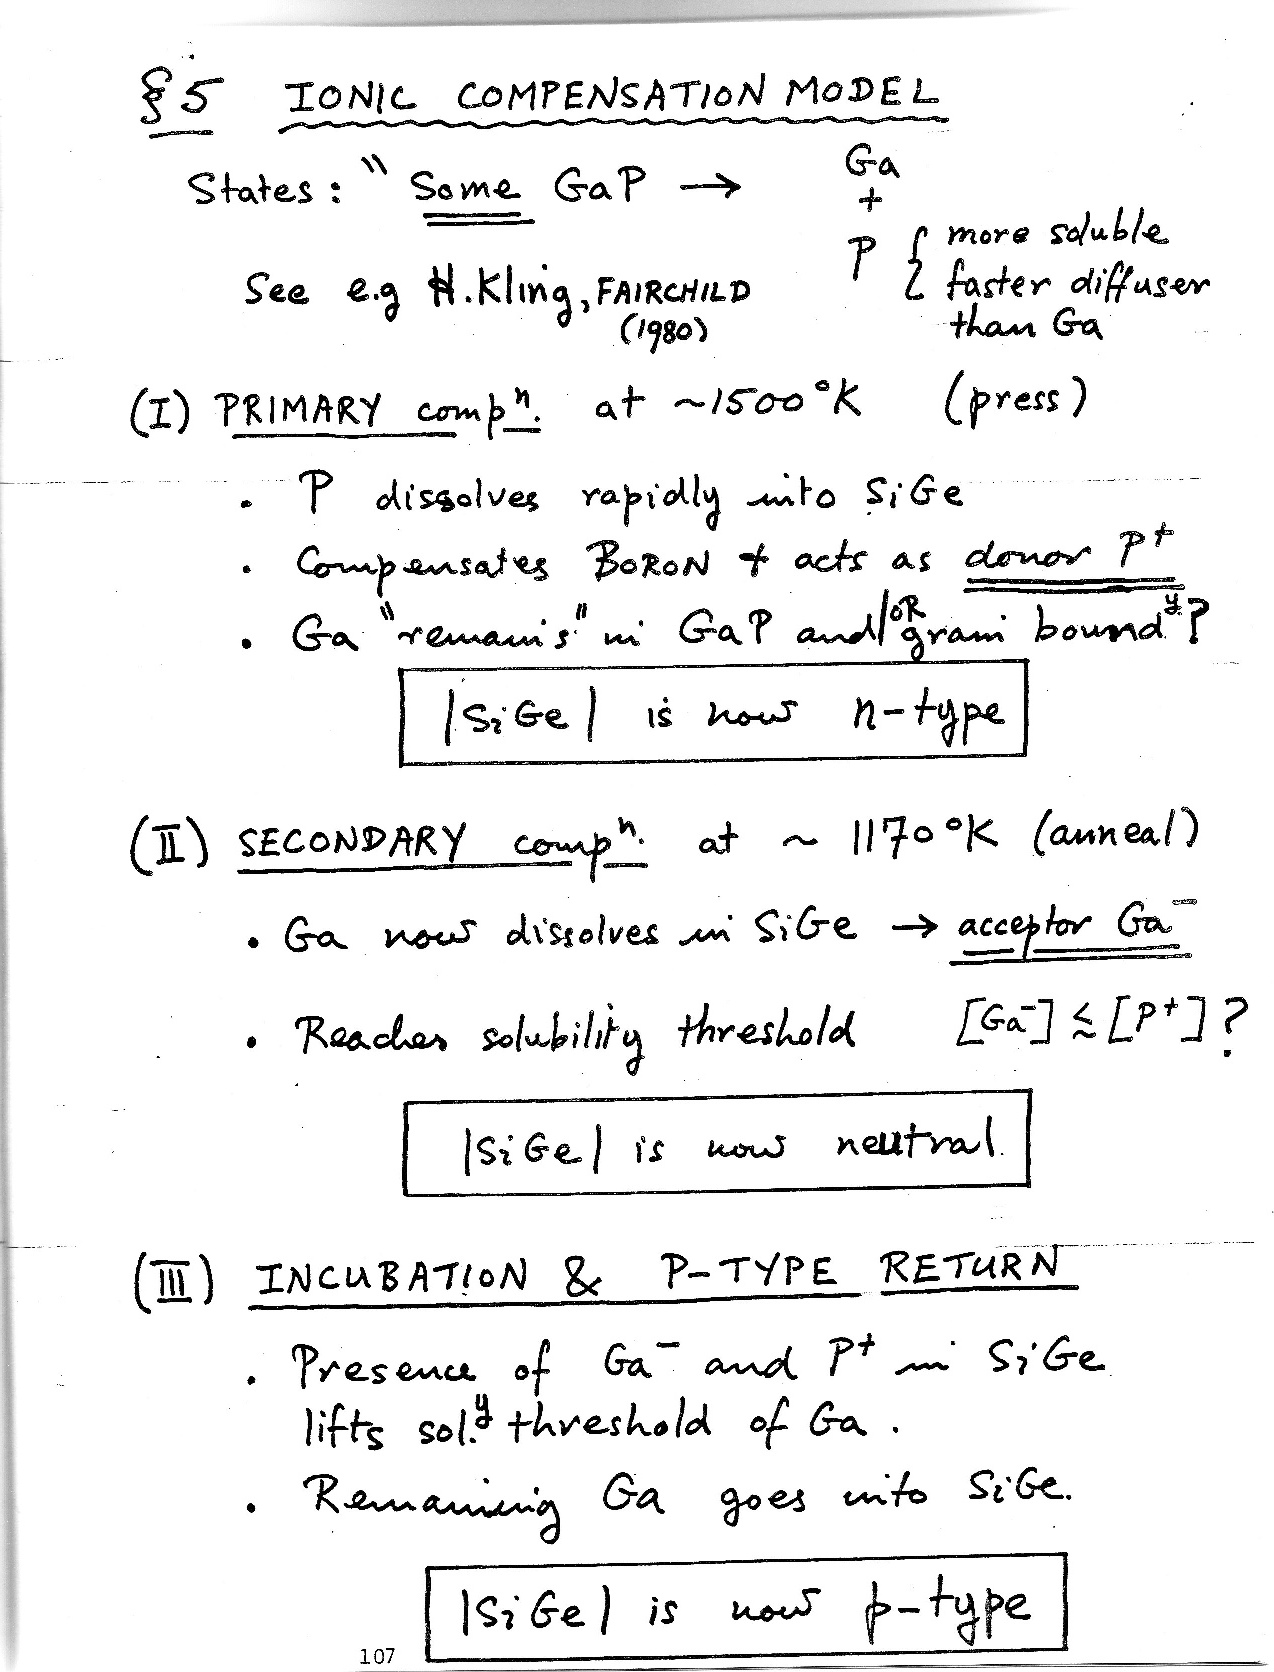 §5 IONIC COMPENSATION MODEL
States: " Some GaP → Ga
+
P { more soluble
faster diffuser
than Ga
See e.g H. Kling, FAIRCHILD
(1980)
(I) PRIMARY compⁿ. at ~1500°K (press)
. P dissolves rapidly into SiGe
. Compensates BORON + acts as donor P⁺
. Ga "remains" in GaP and/OR grain boundʸ?
|SiGe| is now n-type
(II) SECONDARY compⁿ. at ~ 1170°K (anneal)
. Ga now dissolves in SiGe → acceptor Ga⁻
. Reaches solubility threshold [Ga⁻] ≲ [P⁺]?
|SiGe| is now neutral.
(III) INCUBATION & P-TYPE RETURN
. Presence of Ga⁻ and P⁺ in SiGe
lifts sol.ʸ threshold of Ga.
. Remaining Ga goes into SiGe.
|SiGe| is now p-type
107